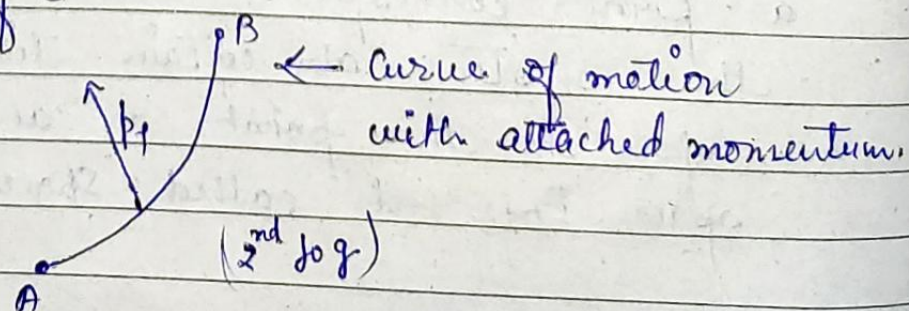 B
← Curve of motion
with attached momentum.
p₁
(2nd fog)
A